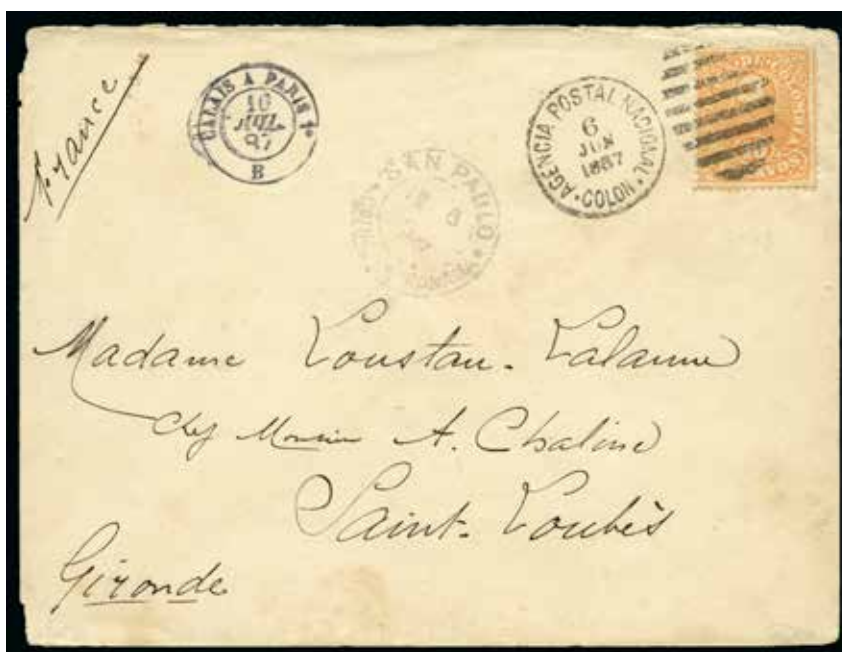 France
CALAIS A PARIS 1º
10
JUIL
87
B
AGENCIA POSTAL NACIONAL
6
JUN
1887
COLON
SAN PABLO
Madame Loustau-Lalanne
Chez A. Chaline
Saint-Loubès
Gironde